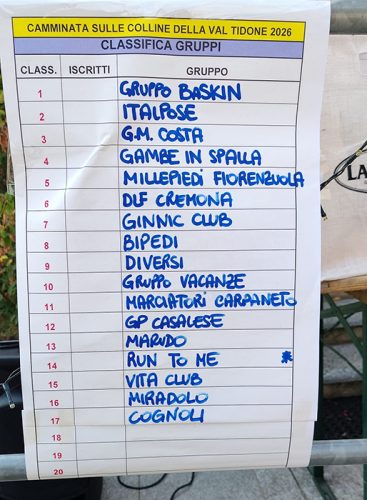 CAMMINATA SULLE COLLINE DELLA VAL TIDONE 2026
CLASSIFICA GRUPPI
CLASS. ISCRITTI GRUPPO
1 GRUPPO BASKIN
2 ITALPOSE
3 G.M. COSTA
4 GAMBE IN SPALLA
5 MILLEPIEDI FIORENZUOLA
6 DLF CREMONA
7 GINNIC CLUB
8 BIPEDI
9 DIVERSI
10 GRUPPO VACANZE
11 MARCIATORI CARPANETO
12 GP CASALESE
13 MARUDO
14 RUN TO ME *
15 VITA CLUB
16 MIRADOLO
17 COGNOLI
18
19
20
LA